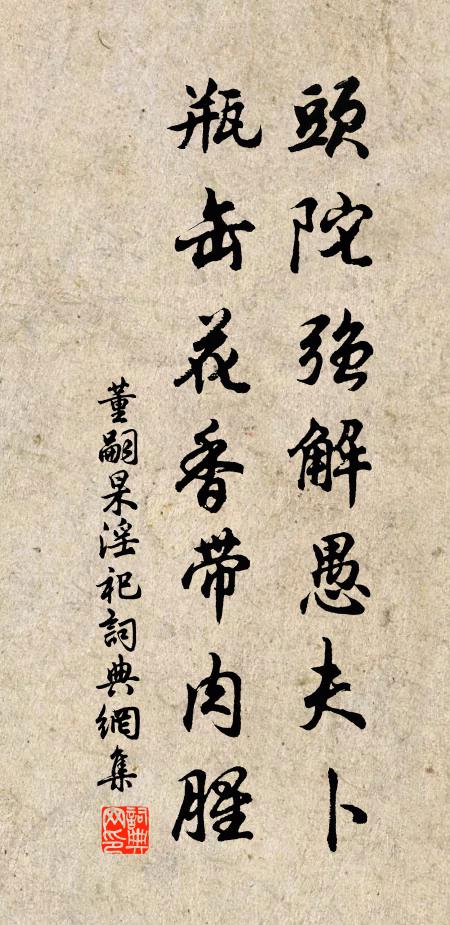 頭陀強解愚夫卜
瓶缶花香帶肉腥
董嗣杲淫祀詞典網集
詞典網印